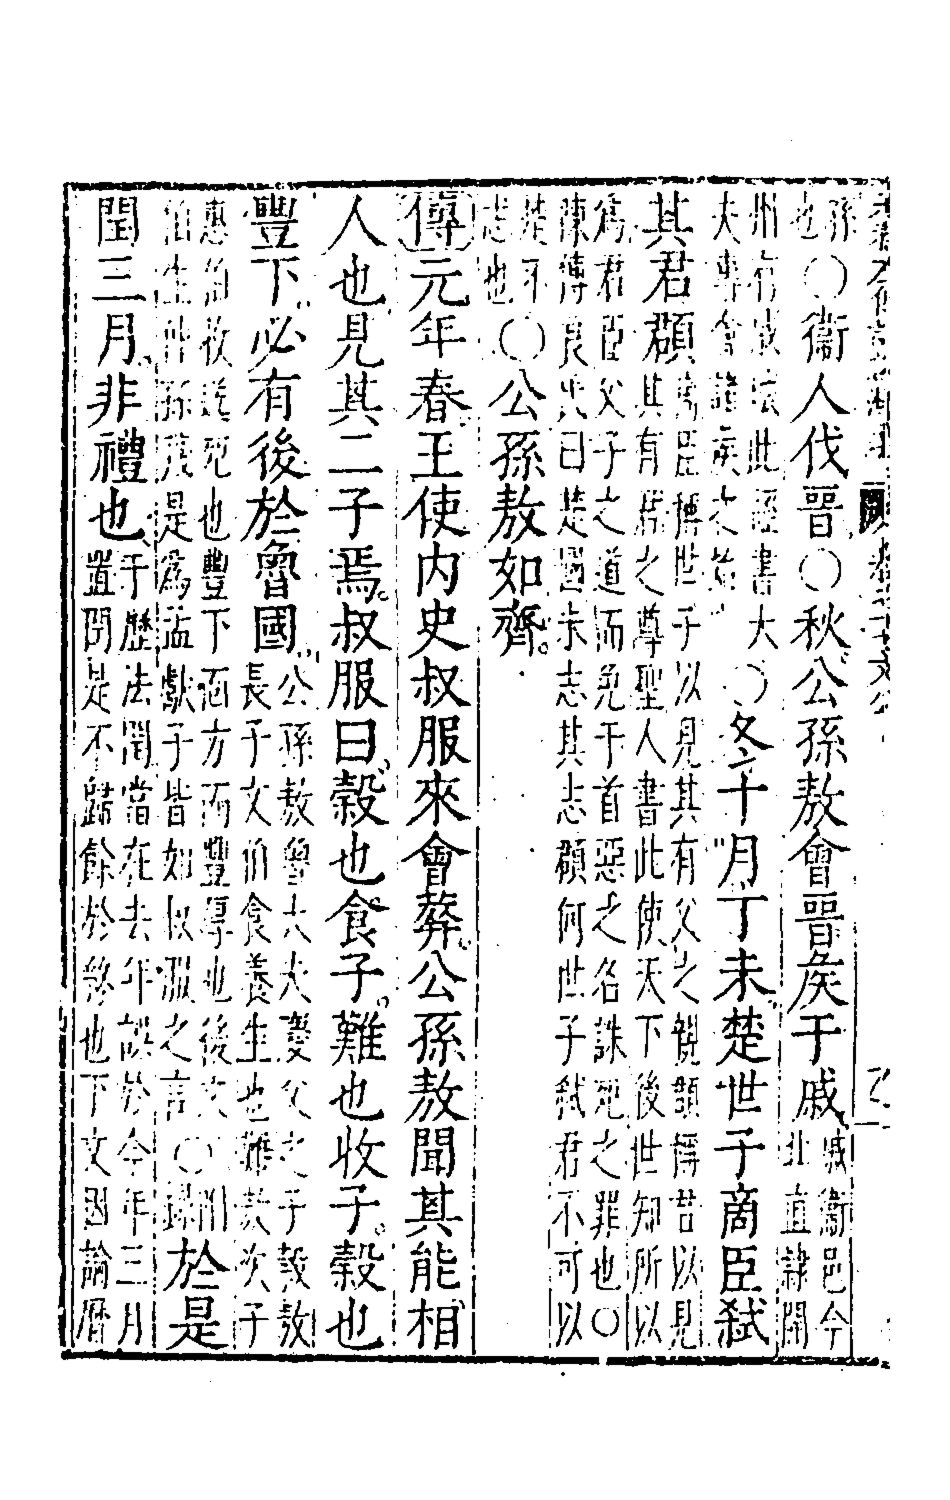 孫
也
○衞人伐晉○秋公孫敖會晉侯于戚
戚衞邑今
北直隸開
州有戚城此經書大
夫專會諸侯之始
○冬十月丁未楚世子商臣弒
其君頵
書臣稱世子以見其有父之親頵稱君以見
其有君之尊聖人書此使天下後世知所以
爲君臣父子之道而免于首惡之名誅死之罪也○
陳傅良氏曰楚國未志其志頵何世子弒君不可以
楚不
志也
○公孫敖如齊
傳元年春王使内史叔服來會葬公孫敖聞其能相
人也見其二子焉叔服曰穀也食子難也收子穀也
豐下必有後於魯國
公孫敖魯大夫慶父之子穀敖
長子文伯食養生也難敖次子
惠伯收送死也豐下面方而豐厚也後文
伯生仲孫蔑是爲孟獻子皆如叔服之言○
附
錄
於是
閏三月非禮也
于歷法閏當在去年誤於今年三月
置閏是不歸餘於終也下文因論曆